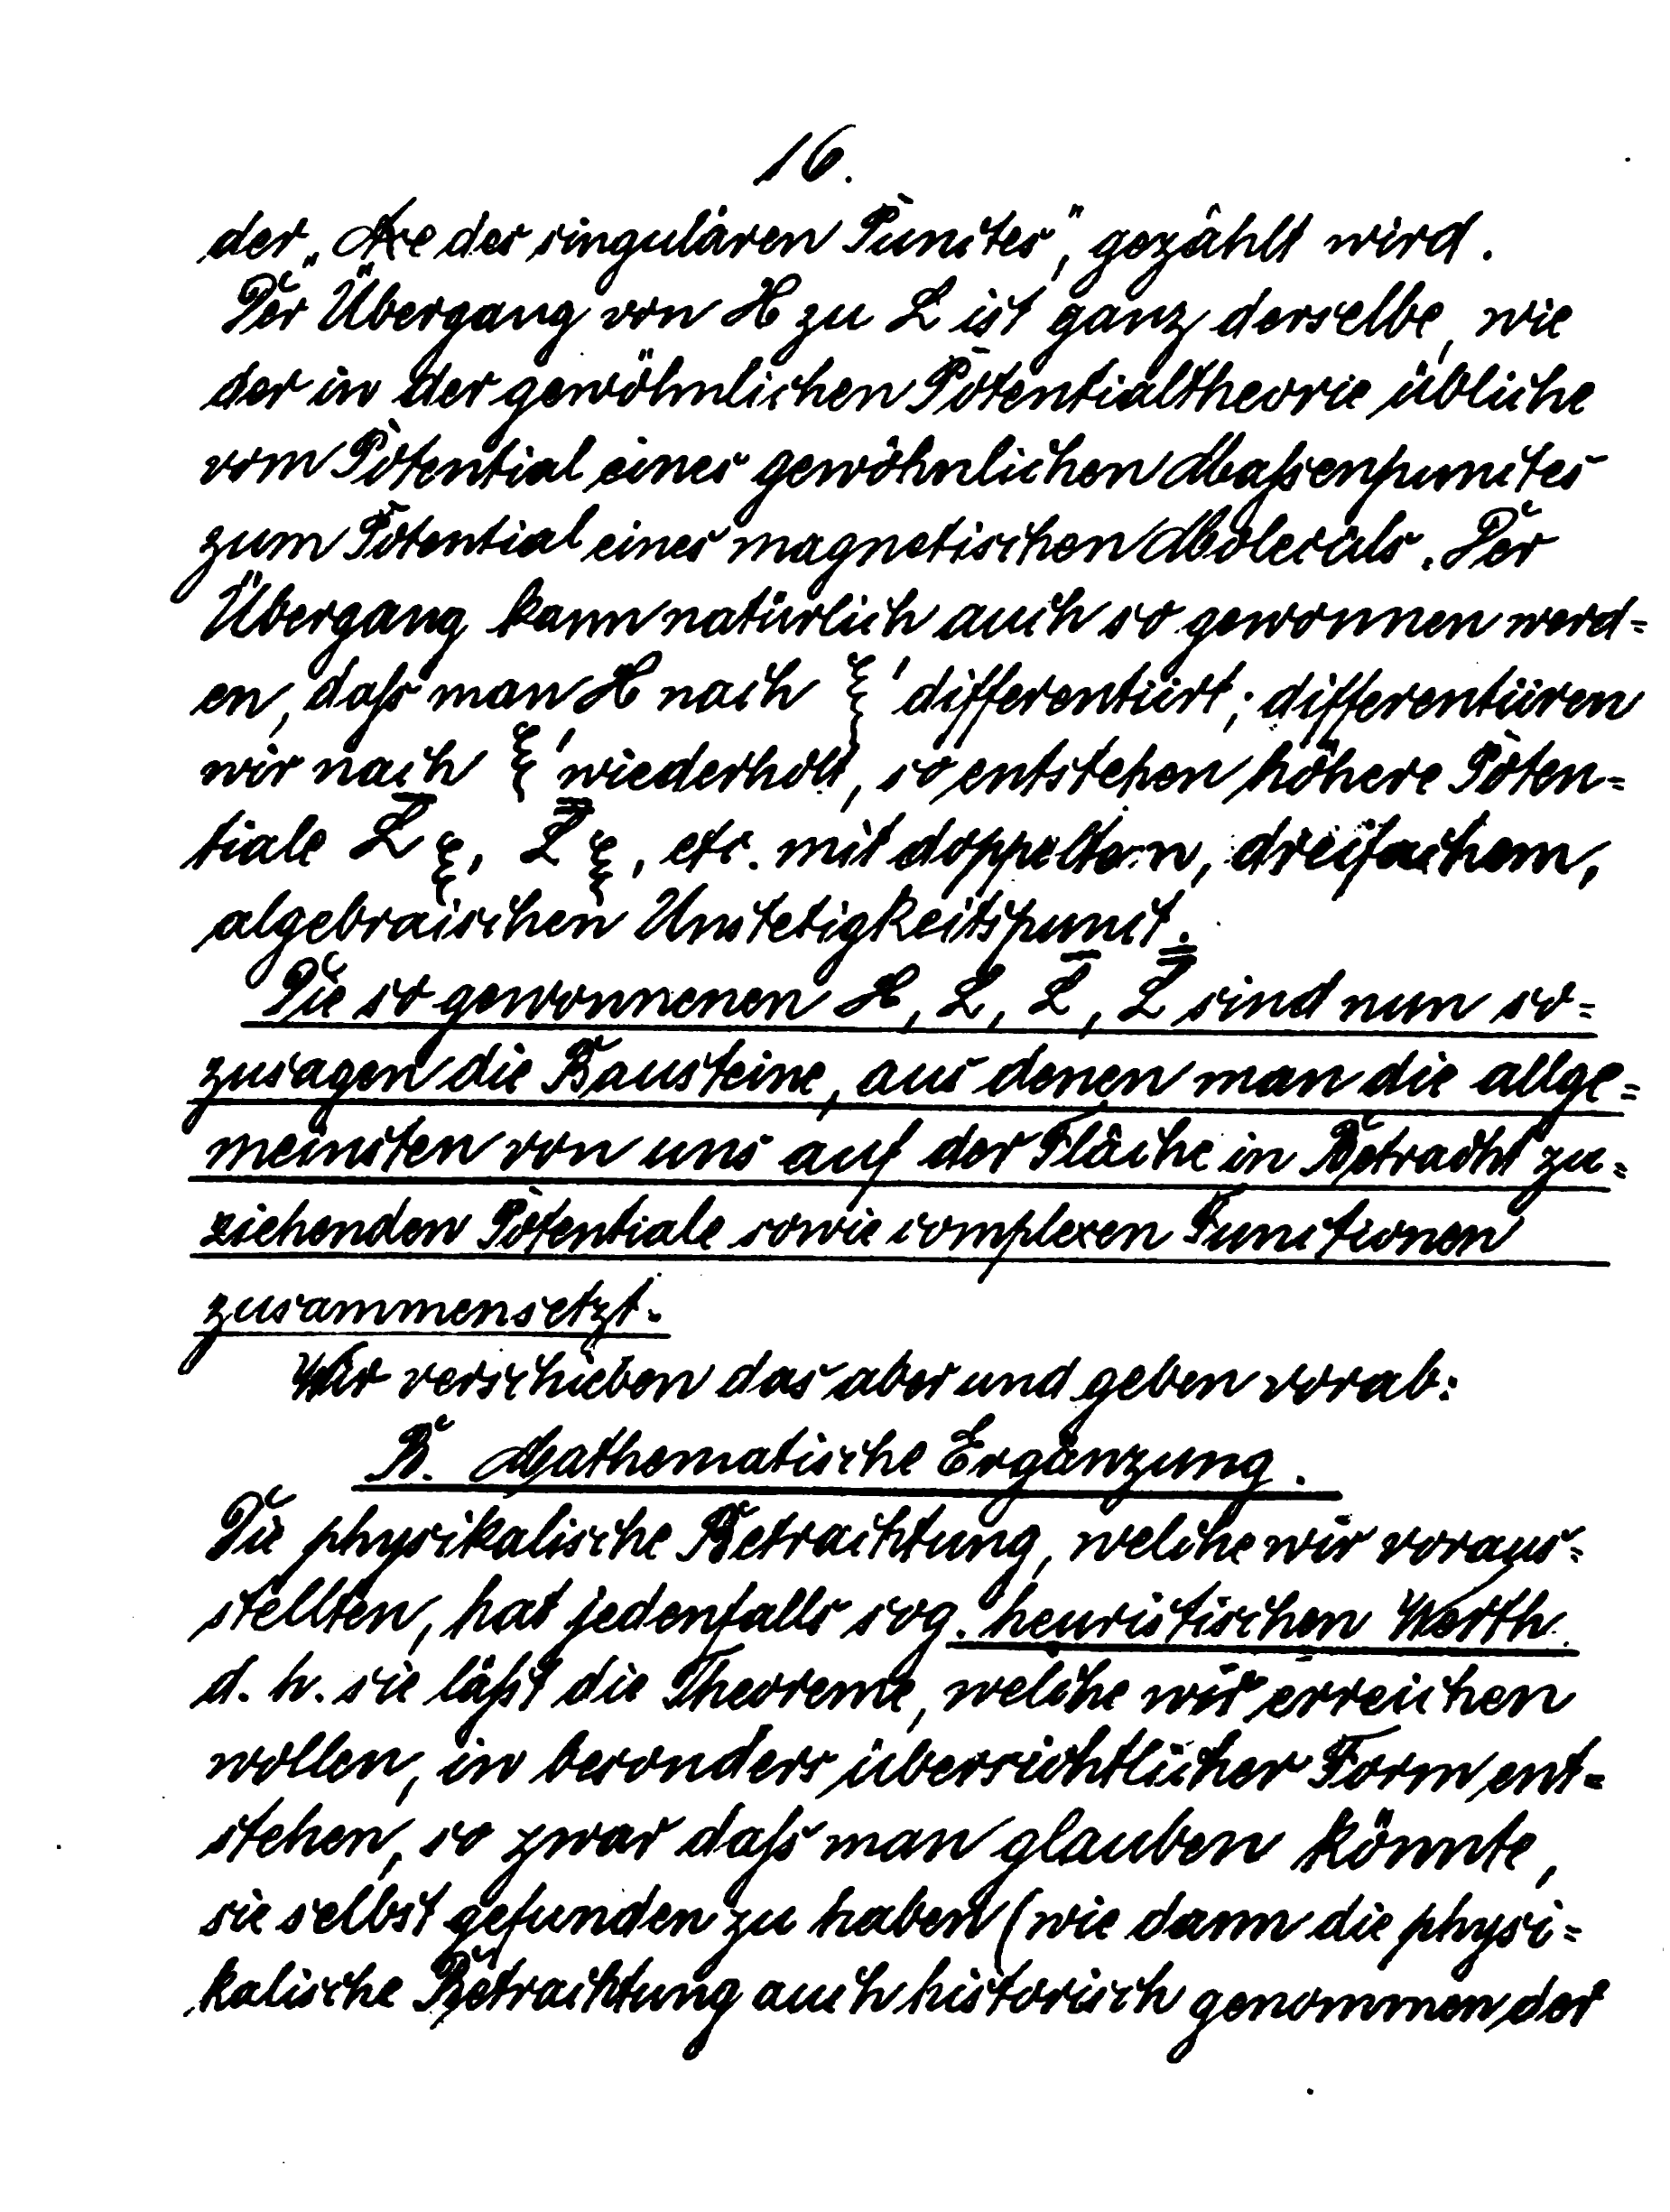 16.
der „Axe des singulären Punctes“, gezählt wird.
Der Übergang von H zu L ist ganz derselbe, wie
der in der gewöhnlichen Potentialtheorie übliche
vom Potential eines gewöhnlichen Maßenpunctes
zum Potential eines magnetischen Moleculs. Der
Übergang kann natürlich auch so gewonnen werd=
en, daß man H nach ξ' differentiirt; differentiiren
wir nach ξ' wiederholt, so entstehen höhere Poten=
tiale L̅ ξ, L̿ ξ, etc. mit doppeltem, dreifachem,
algebraischen Unstetigkeitspunct.
Die so gewonnenen H, L, L̅, L̿ sind nun so=
zusagen die Bausteine, aus denen man die allge=
meinsten von uns auf der Fläche in Betracht zu=
ziehenden Potentiale sowie complexen Functionen
zusammensetzt.
Wir verschieben das aber und geben vorab:
B. Mathematische Ergänzung.
Die physikalische Betrachtung, welche wir voraus=
stellten, hat jedenfalls sog. heuristischen Werth.
d. h. sie läßt die Theoreme, welche wir erreichen
wollen, in besonders übersichtlicher Form ent=
stehen, so zwar daß man glauben könnte,
sie selbst gefunden zu haben (wie dann die physi=
kalische Betrachtung auch historisch genommen der